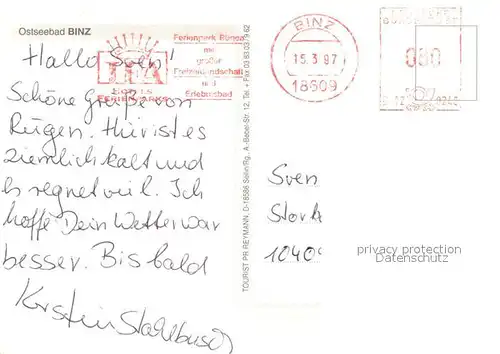 Ostseebad BINZ
Hallo Sven!
Schöne Grüße von
Rügen. Hier ist es
ziemlich kalt und
es regnet viel. Ich
hoffe Dein Wetter war
besser. Bis bald
Kerstin
Ferienpark Rügen
mit
großer
und
Erlebnisbad
FERIENPARKS
TOURIST PR REYMANN, D-18586 Sellin/Rg., A.-Bebel-Str. 12, Tel.
BINZ
15.3.97
18609
Sven
Stork
10409
privacy protection
Datenschutz